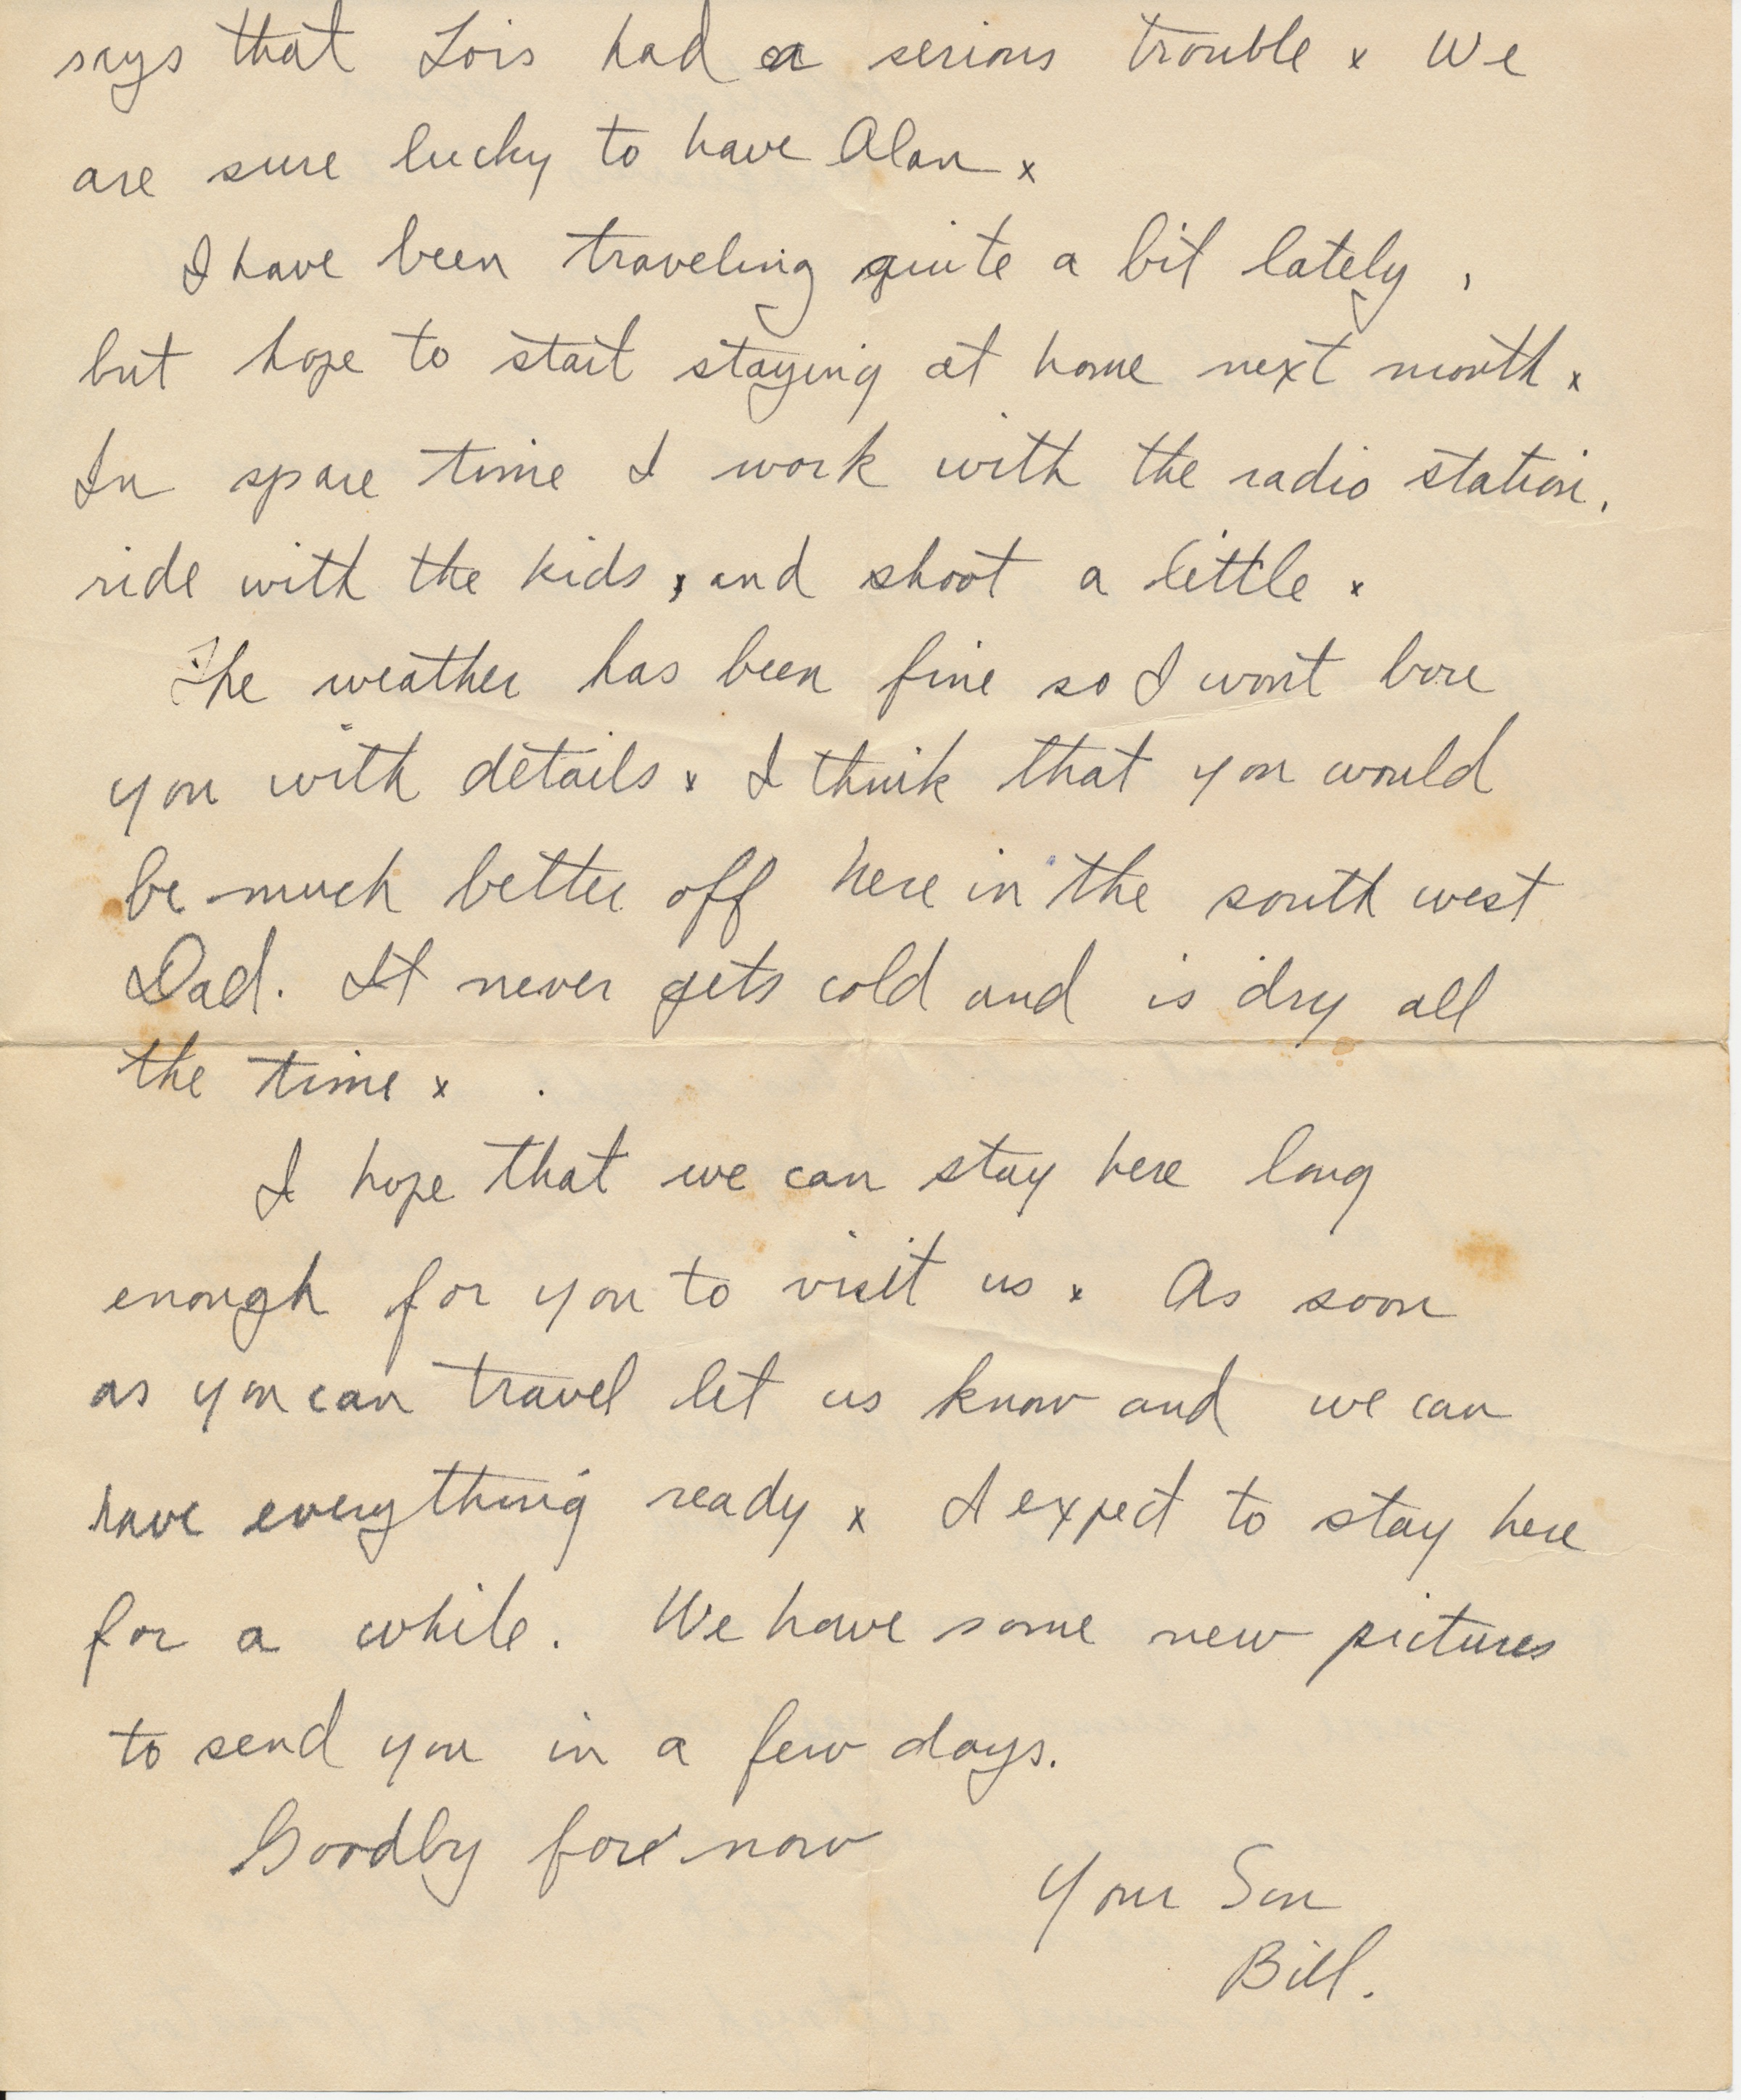 says that Lois had a serious trouble x We
are sure lucky to have Alan x
I have been traveling quite a bit lately ,
but hope to start staying at home next month x
In spare time I work with the radio station,
ride with the kids, and shoot a little x
The weather has been fine so I wont bore
you with details x I think that you would
be much better off here in the south west
Dad. It never gets cold and is dry all
the time x
I hope that we can stay here long
enough for you to visit us x As soon
as you can travel let us know and we can
have everything ready x I expect to stay here
for a while. We have some new pictures
to send you in a few days.
Goodby fore now
Your Son
Bill.